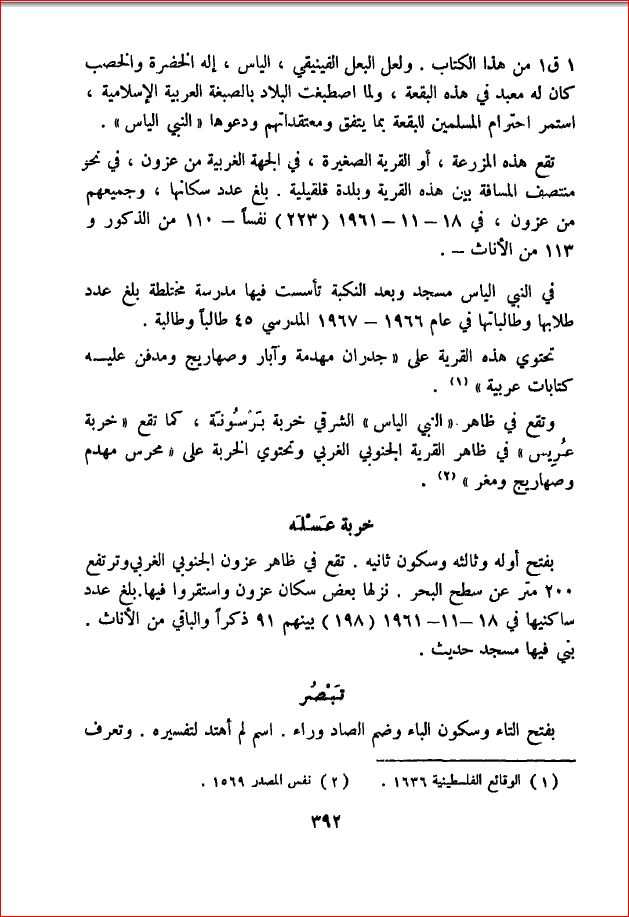 ١ ق١ من هذا الكتاب . ولعل البعل الفينيقي ، الياس ، إله الخضرة والخصب
كان له معبد في هذه البقعة ، ولما اصطبغت البلاد بالصبغة العربية الإسلامية ،
استمر احترام المسلمين للبقعة بما يتفق ومعتقداتهم ودعوها « النبي الياس » .
تقع هذه المزرعة ، أو القرية الصغيرة ، في الجهة الغربية من عزون ، في نحو
منتصف المسافة بين هذه القرية وبلدة قلقيلية . بلغ عدد سكانها ، وجميعهم
من عزون ، في ١٨ – ١١ – ١٩٦١ ( ٢٢٣ ) نفساً – ١١٠ من الذكور و
١١٣ من الأناث – .
في النبي الياس مسجد وبعد النكبة تأسست فيها مدرسة مختلطة بلغ عدد
طلابها وطالباتها في عام ١٩٦٦ – ١٩٦٧ المدرسي ٤٥ طالباً وطالبة .
تحتوي هذه القرية على « جدران مهدمة وآبار وصهاريج ومدفن عليــه
كتابات عربية » (١) .
وتقع في ظاهر « النبي الياس » الشرقي خربة بَرْسُونَة ، كما تقع « خربة
عرِيس » في ظاهر القرية الجنوبي الغربي وتحتوي الخربة على « محرس مهدم
وصهاريج ومغر » (٢) .
خربة عَسْلَه
بفتح أوله وثالثه وسكون ثانيه . تقع في ظاهر عزون الجنوبي الغربي وترتفع
٢٠٠ متر عن سطح البحر . نزلها بعض سكان عزون واستقروا فيها . بلغ عدد
ساكنيها في ١٨ – ١١ – ١٩٦١ ( ١٩٨ ) بينهم ٩١ ذكراً والباقي من الأناث .
بني فيها مسجد حديث .
تَبْصُر
بفتح التاء وسكون الباء وضم الصاد وراء . اسم لم أهتد لتفسيره . وتعرف
( ١ ) الوقائع الفلسطينية ١٦٣٦ . ( ٢ ) نفس المصدر ١٥٦٩ .
٣٩٢